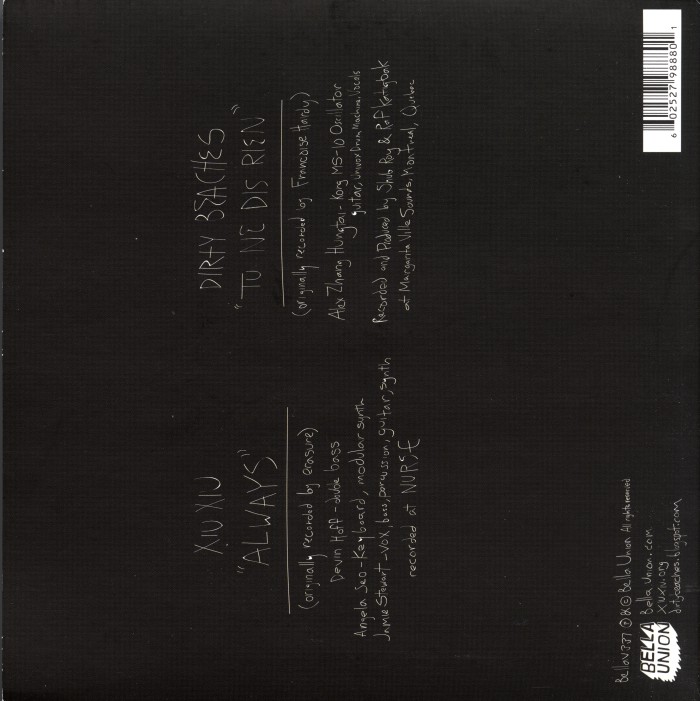 XIU XIU
"ALWAYS"
(originally recorded by erasure)
Devin Hoff - double bass
Angela Seo - Keyboard, modular synth
Jamie Stewart - vox, bass, percussion, guitar, synth
recorded at NURSE
DIRTY BEACHES
"TU NE DIS RIEN"
(originally recorded by Francoise Hardy)
Alex Zhang Hungtai - Korg MS-10 Oscillator
guitar, Univox Drum Machine, Vocals
Recorded and Produced by Shub Roy &
at Margarita Ville Sounds, Montreal, Quebec
BellaV337 Ⓟ & © Bella Union All rights reserved
BELLA UNION
Bella Union.com
xiuxiu.org
dirtybeaches.blogspot.com
6 02527 98880 1